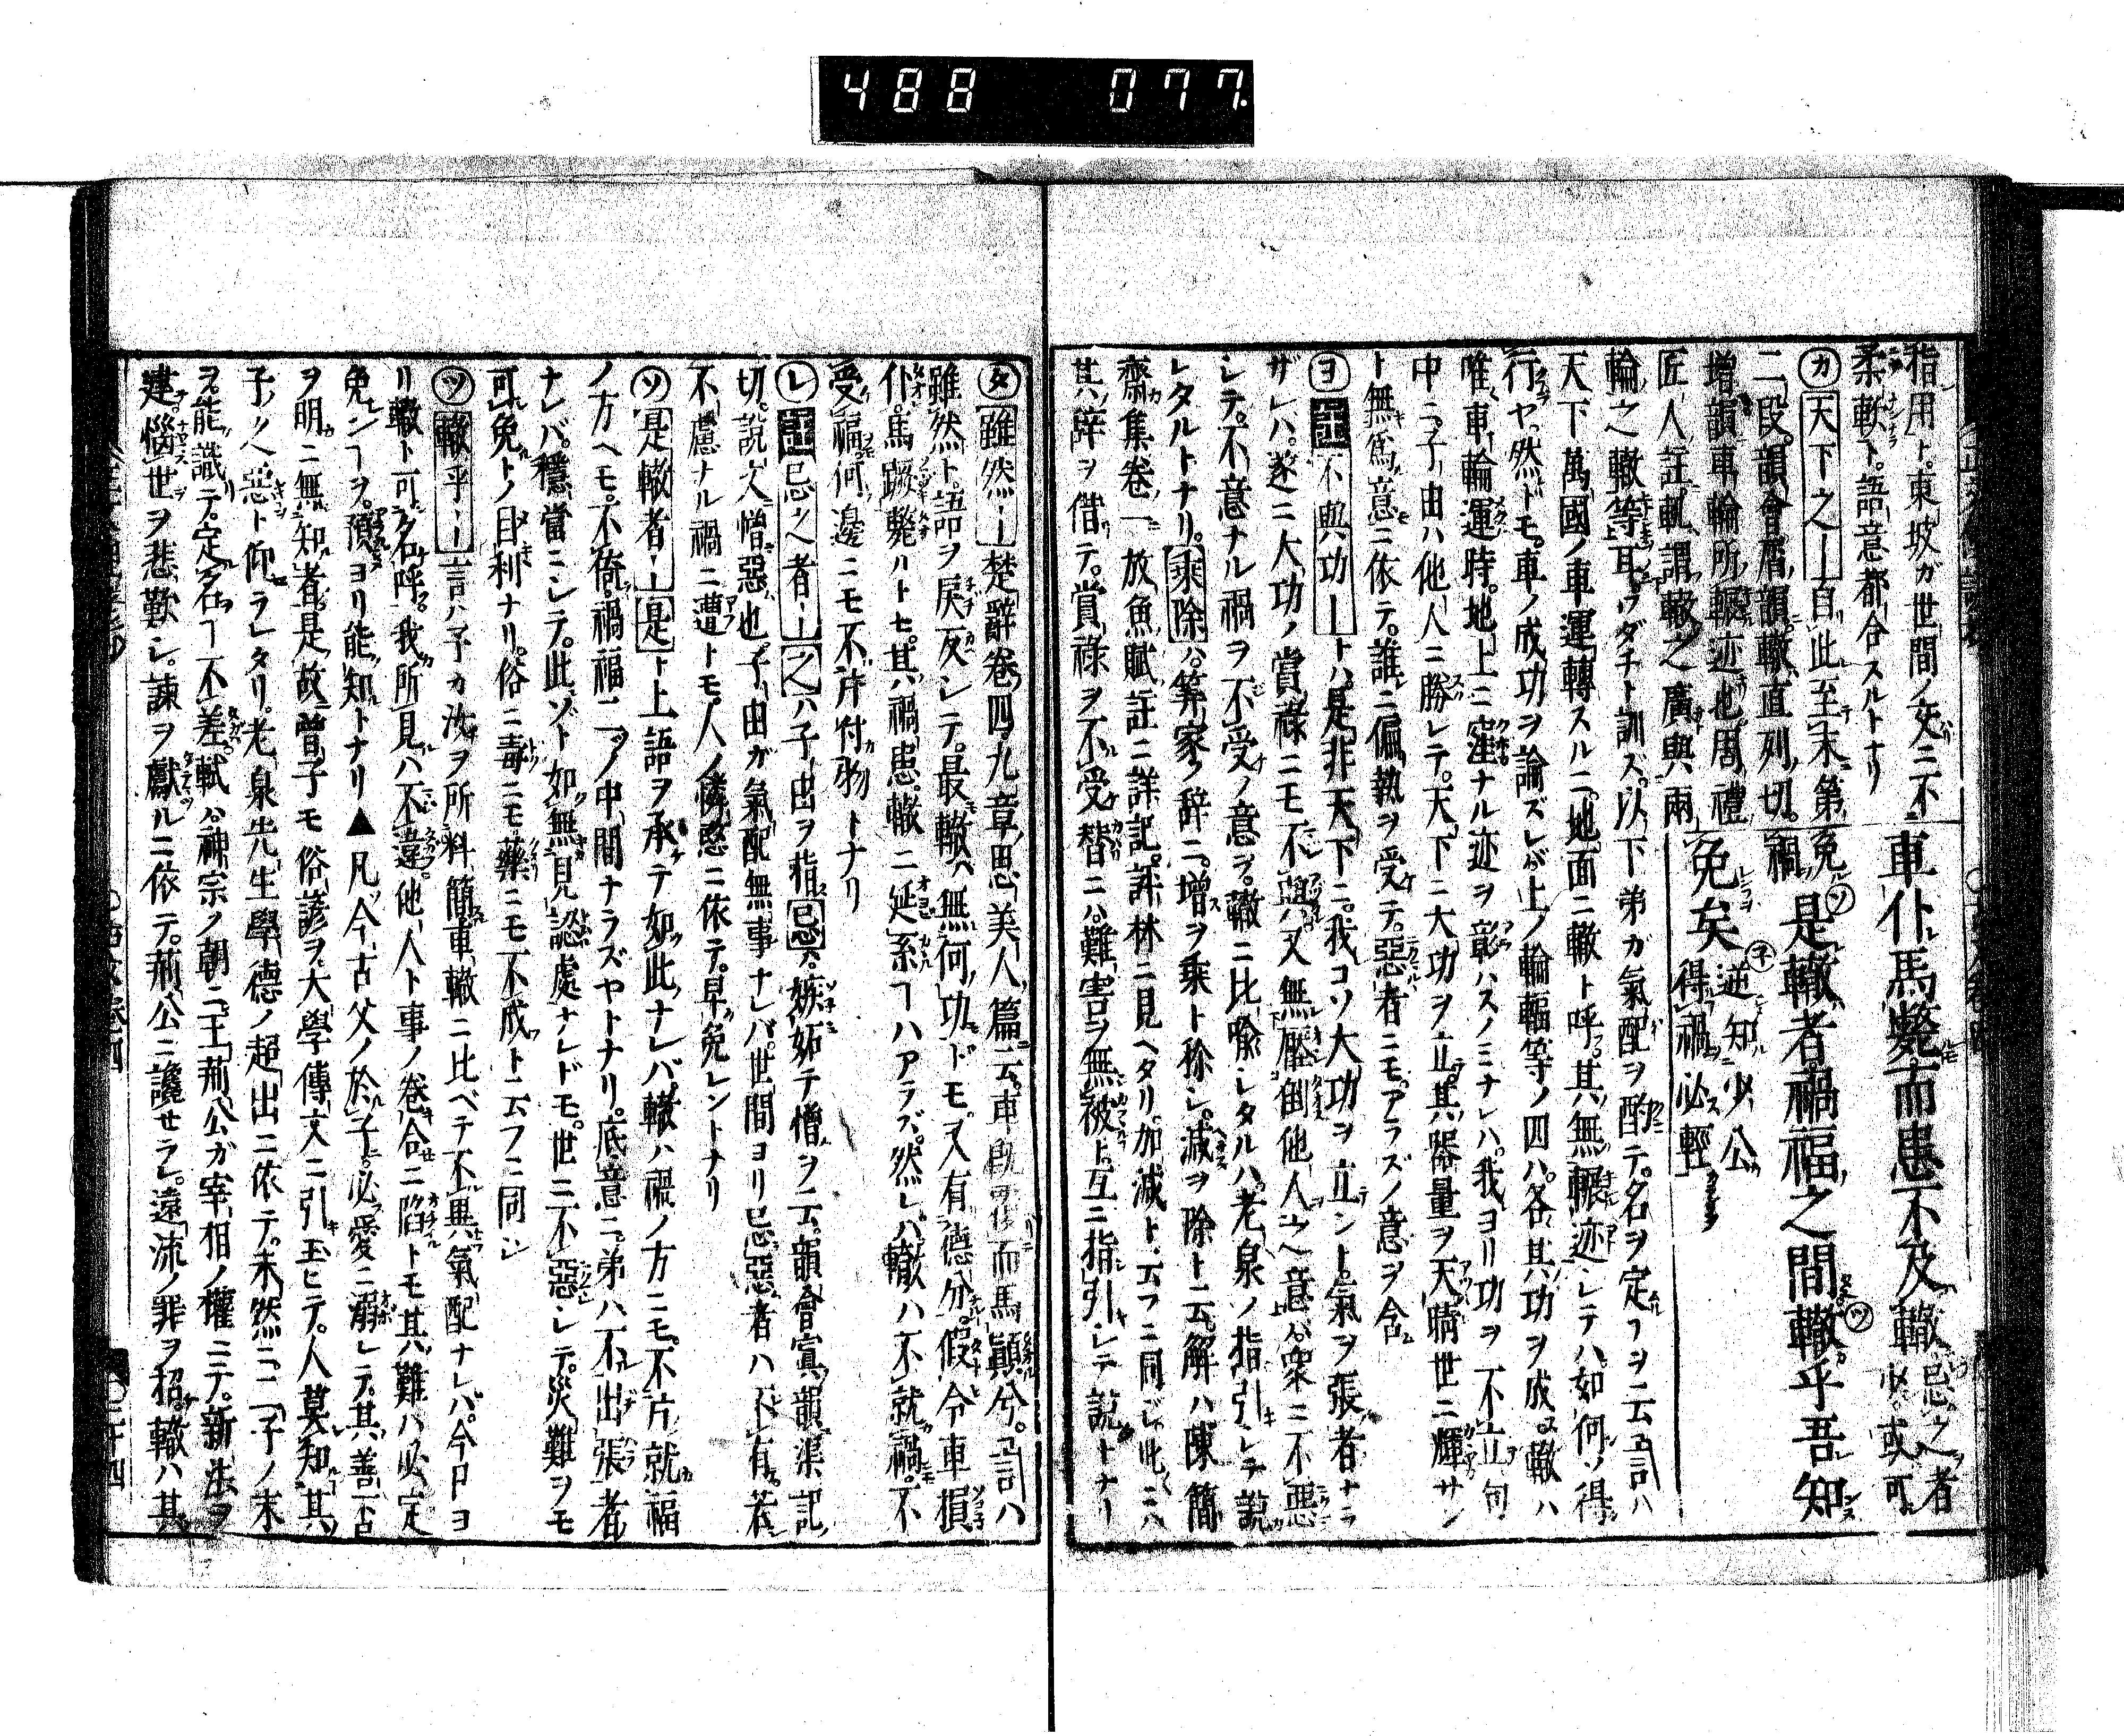 488 077
指用ト。東坡ガ世間ノ交ニ不
柔軟ト。語意都合スルトナリ
㋕天下之ー自此至末第
二段。韻會屑韻。轍直列切。
増韻車輪所輾迹也。周禮
匠人註軌謂轍之廣與兩
車仆馬斃而患不及轍忌之者少或可
免禍是轍者禍福之間轍乎吾知
免矣逆知少公得禍必輕
輪之轍等耳ワダチト訓ズ。以下弟ガ氣配ヲ酌テ。名ヲ定ヿヲ云 言ハ
天下萬國ノ車運轉スルニ。地面ニ轍ト呼。其無輾迹シテハ。如何ソ得
行ヤ。然ドモ。車ノ成功ヲ論ズレバ。上ノ輪輻等ノ四ハ。各其功ヲ成。轍ハ
唯車輪運時。地上ニ窪ナル迹ヲ彰ハスノミナレハ。我ヨリ功ヲ不立句
中ニ。子由ハ他人ニ勝レテ。天下ニ大功ヲ立。其器量ヲ天晴世ニ輝サン
ト無爲意ニ依テ。誰ニ偏執ヲ受テ。惡者ニモアラズノ意ヲ含
㋾不與功ートハ。是非天下ニ。我コソ大功ヲ立ント。氣ヲ張者ナラ
ザレハ。遂ニ大功ノ賞祿ニモ不與。又無壓倒他人之意バ。衆ニ不惡
シテ。不意ナル禍ヲ不受ノ意ヲ。轍ニ比喩シタルハ。老泉ノ指引シテ說
レタルトナリ。乘除ハ。筭家ノ辞ニ。増ヲ乘ト称シ。減ヲ除ト云。解ハ陳簡
齋集卷一放魚賦註ニ詳記。詠林ニ見ヘタリ。加減ト云フニ同ジ。此ニハ
其辞ヲ借テ。賞祿ヲ不受替ニハ。難害ヲ無被ト。互ニ指引シテ說トナリ
㋟雖然ー楚辭卷四九章思美人篇云。車既覆而馬顚兮。言ハ
雖然ト。語ヲ戻反シテ。最轍ハ無何功ドモ。又有德分。假令車損
仆。馬蹶斃ルトセ。其禍患轍ニ延系ヿハアラズ。然レバ轍ハ不就禍。不
受福。何邊ニモ不片付物トナリ
㋹忌之者ー之ハ子由ヲ指忌ハ。嫉妬テ憎ヲ云。韻會寘韻渠記
切。說文憎惡也。子由ガ氣配無事ナレバ。世間ヨリ忌惡者ハ不有。若
不慮ナル禍ニ遭トモ。人ノ憐愍ニ依テ。早免レントナリ
㋞是轍者ー是ト上語ヲ承テ如此ナレバ。轍ハ禍ノ方ニモ。不片就福
ノ方ヘモ。不倚。禍福二ツノ中間ナラズヤトナリ。底意ニ。弟ハ不出張者
ナレバ。穩當ニシテ。此ゾト如無見認處ナレドモ。世ニ不惡シテ。災難ヲモ
可免トノ目利ナリ。俗ニ毒ニモ藥ニモ不成ト云フニ同シ
㋡轍乎ー言ハ子カ汝ヲ所料簡車轍ニ比ベテ不異氣配ナレバ。今日ヨ
リ轍ト可名呼。我所見ハ不違。他人ト事ノ卷合ニ陷トモ其難ハ必定
免ンヿヲ。預ヨリ能知トナリ▲凡今古父ノ於子。必愛ニ溺レテ。其善否
ヲ明ニ無知者。是故曾子モ俗諺ヲ。大學傳文ニ引玉ヒテ。人莫知其
子ノ之惡ト仰ラレタリ。老泉先生學德ノ超出ニ依テ。未然ニ二子ノ末
ヲ能識テ。定名ヿ不差。軾ハ神宗ノ朝ニ。王荊公ガ宰相ノ權ニテ。新法ヲ
建惱世ヲ悲歎シ。諫ヲ獻ルニ依テ。荊公ニ讒セラレ。遠流ノ罪ヲ招。轍ハ其